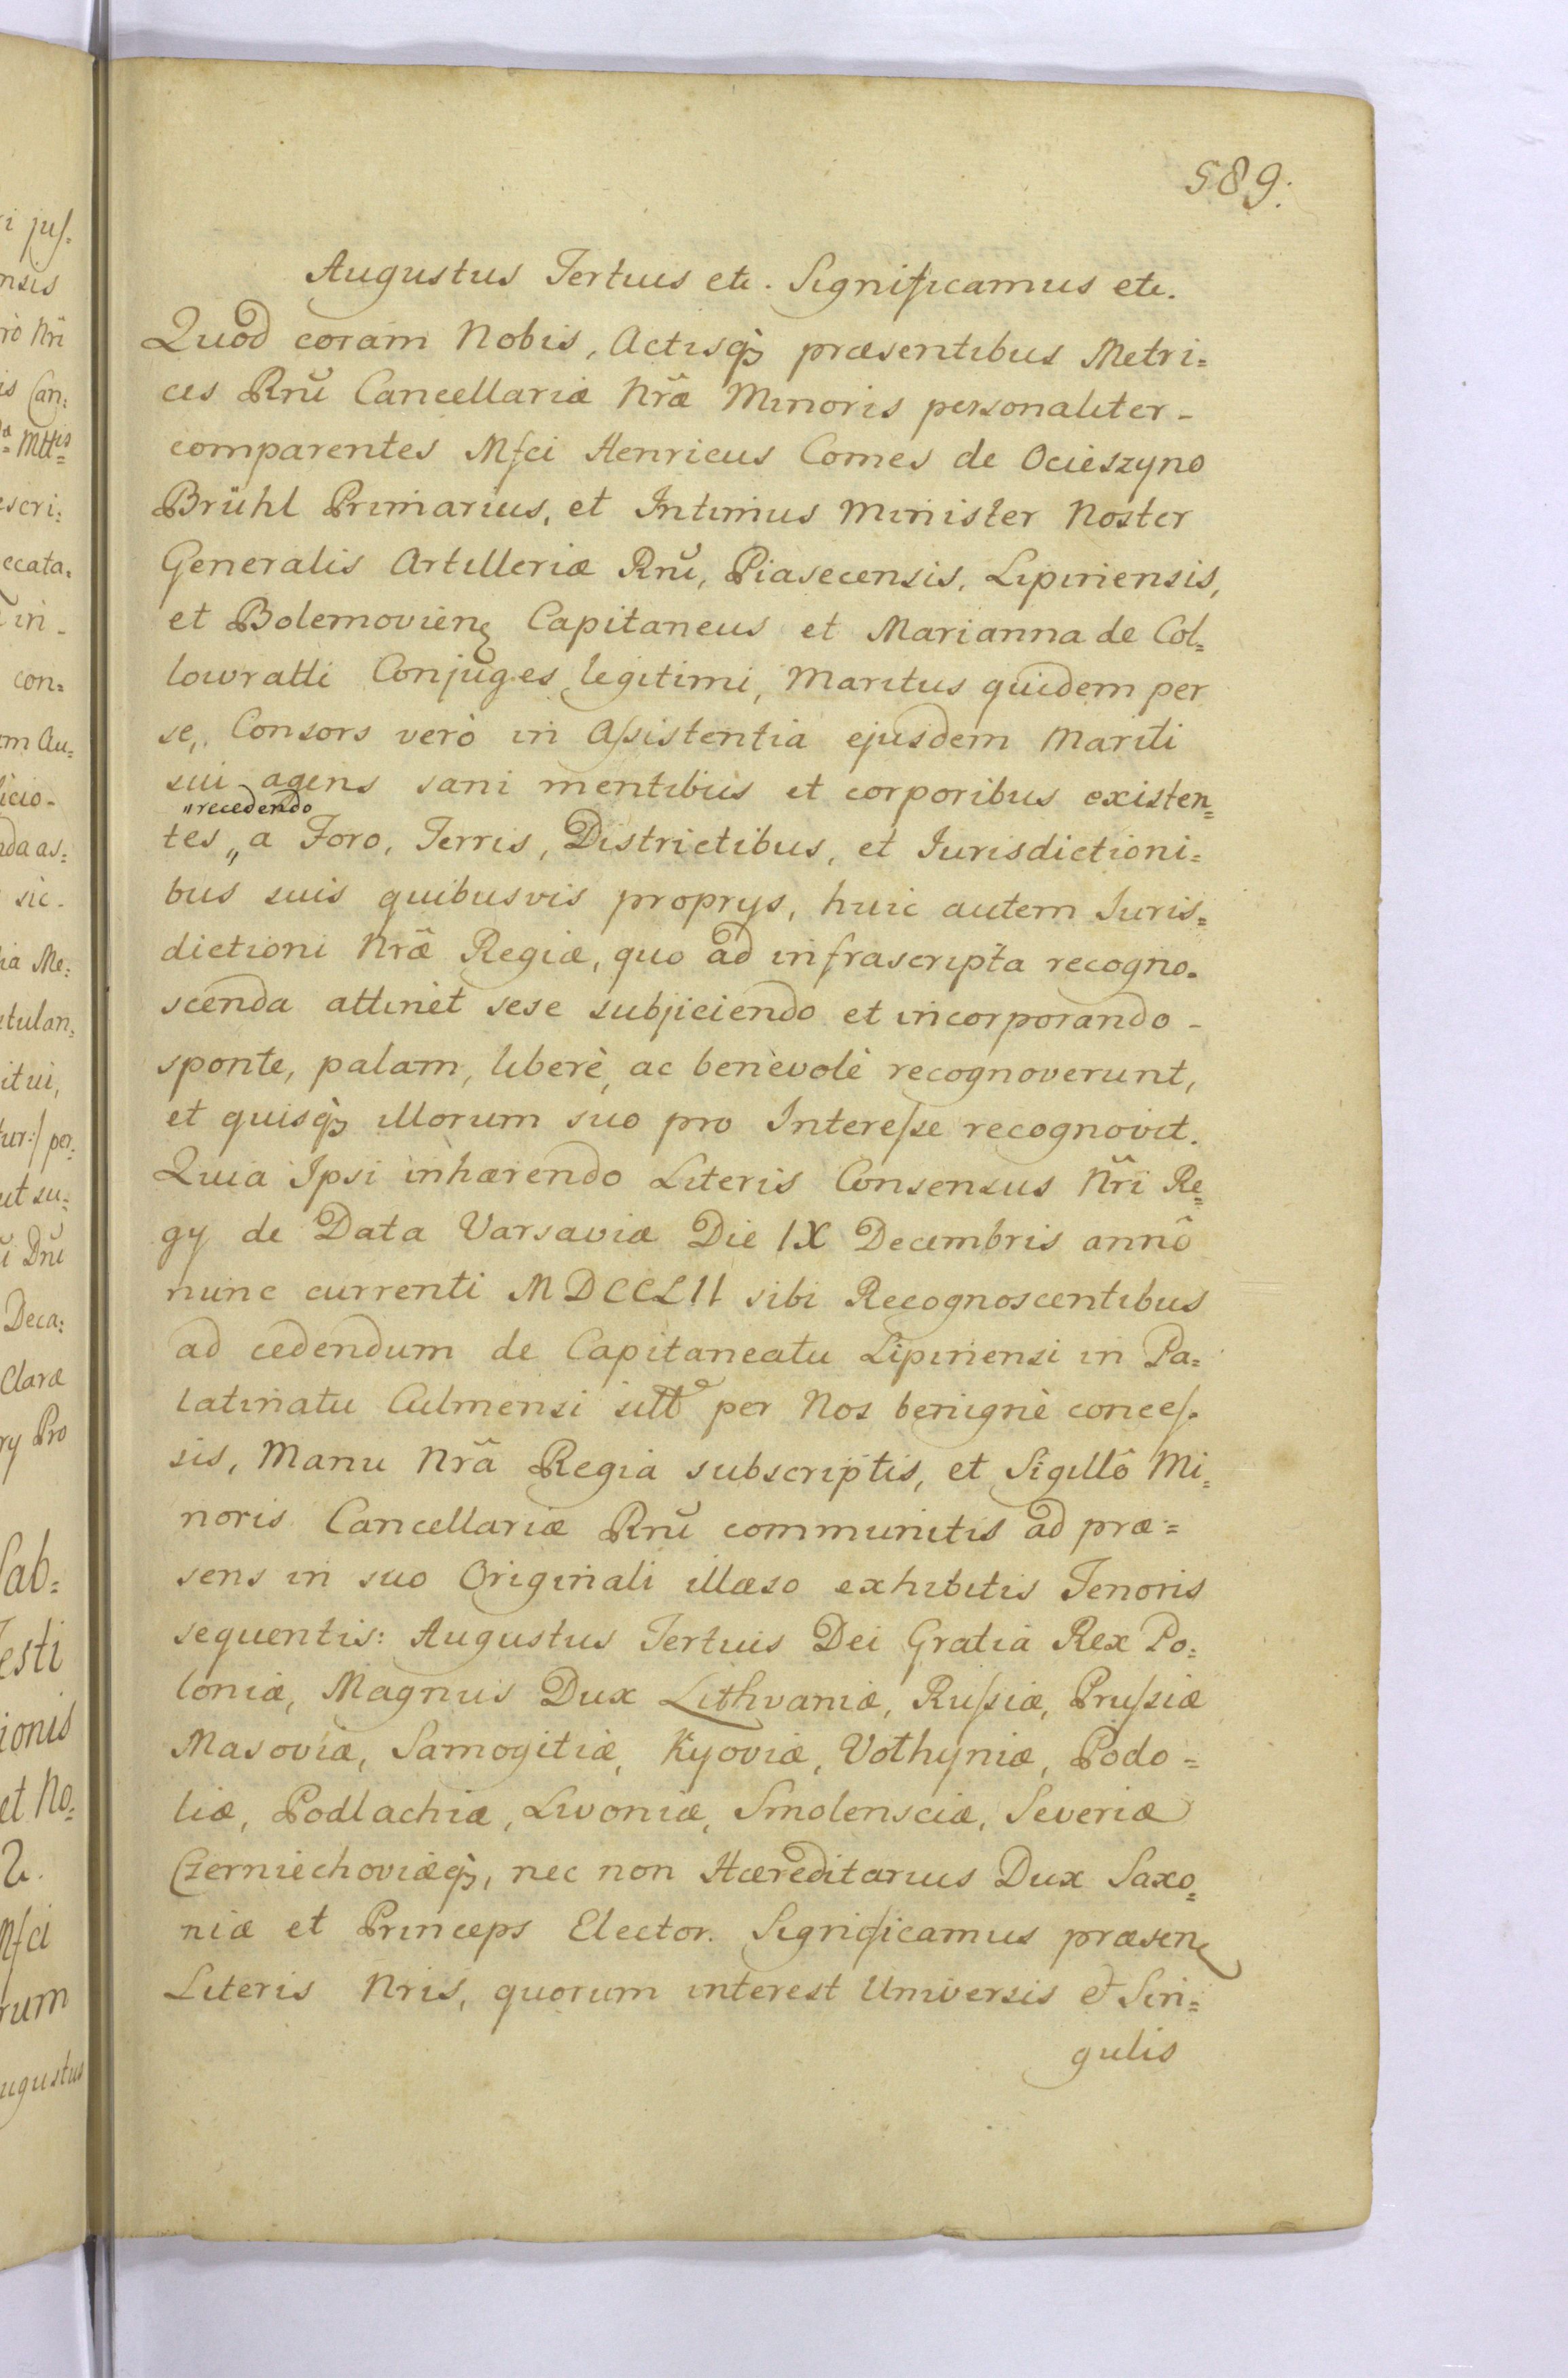 589.
Augustus Tertius etc. Significamus etc.
Quod coram Nobis, Actisq; præsentibus Metri=
ces Rnũ Cancellariæ Nr̃æ Minoris personaliter -
comparentes Mfci Henricus Comes de Ocieszyno
Brühl Primarius, et Intimus Minister Noster
Generalis Artilleriæ Rnũ, Piasecensis, Lipinensis,
et Bolemoviens Capitaneus et Marianna de Col=
lowratti Conjuges legitimi, Maritus quidem per
se, Consors verò in Aſsistentia ejusdem Mariti
sui agens sani mentibus et corporibus existen=
"recedendo
tes „ a Foro, Terris, Districtibus, et Iurisdictioni=
bus suis quibusvis proprys, huic autem Iuris=
dictioni Nr̃æ Regiæ, quo ad infrascripta recogno=
scenda attinet sese subjiciendo et incorporando -
sponte, palam, liberè, ac benevolè recognoverunt,
et quisq; illorum suo pro Intereſse recognovit.
Quia Ipsi inhærendo Literis Consensus Nr̃i Re=
gy de Data Varsaviæ Die IX Decembris annô
nunc currenti MDCCLII sibi Recognoscentibus
ad cedendum de Capitaneatu Lipinensi in Pa=
latinatu Culmensi sitô per Nos benignè conceſ=
sis, Manu Nr̃â Regia subscriptis, et Sigillô Mi=
noris Cancellariæ Rnũ communitis ad præ=
sens in suo Originali illæso exhibitis Tenoris
sequentis: Augustus Tertius Dei Gratia Rex Po=
loniæ, Magnus Dux Lithvaniæ, Ruſsiæ, Pruſsiæ
Masoviæ, Samogitiæ, Kyoviæ, Volhyniæ, Podo=
liæ, Podlachiæ, Livoniæ, Smolensciæ, Severiæ
Czerniechoviæq;, nec non Hæreditarius Dux Saxo=
niæ et Princeps Elector. Significamus præsens
Literis Nris, quorum interest Universis et Sin=
gulis